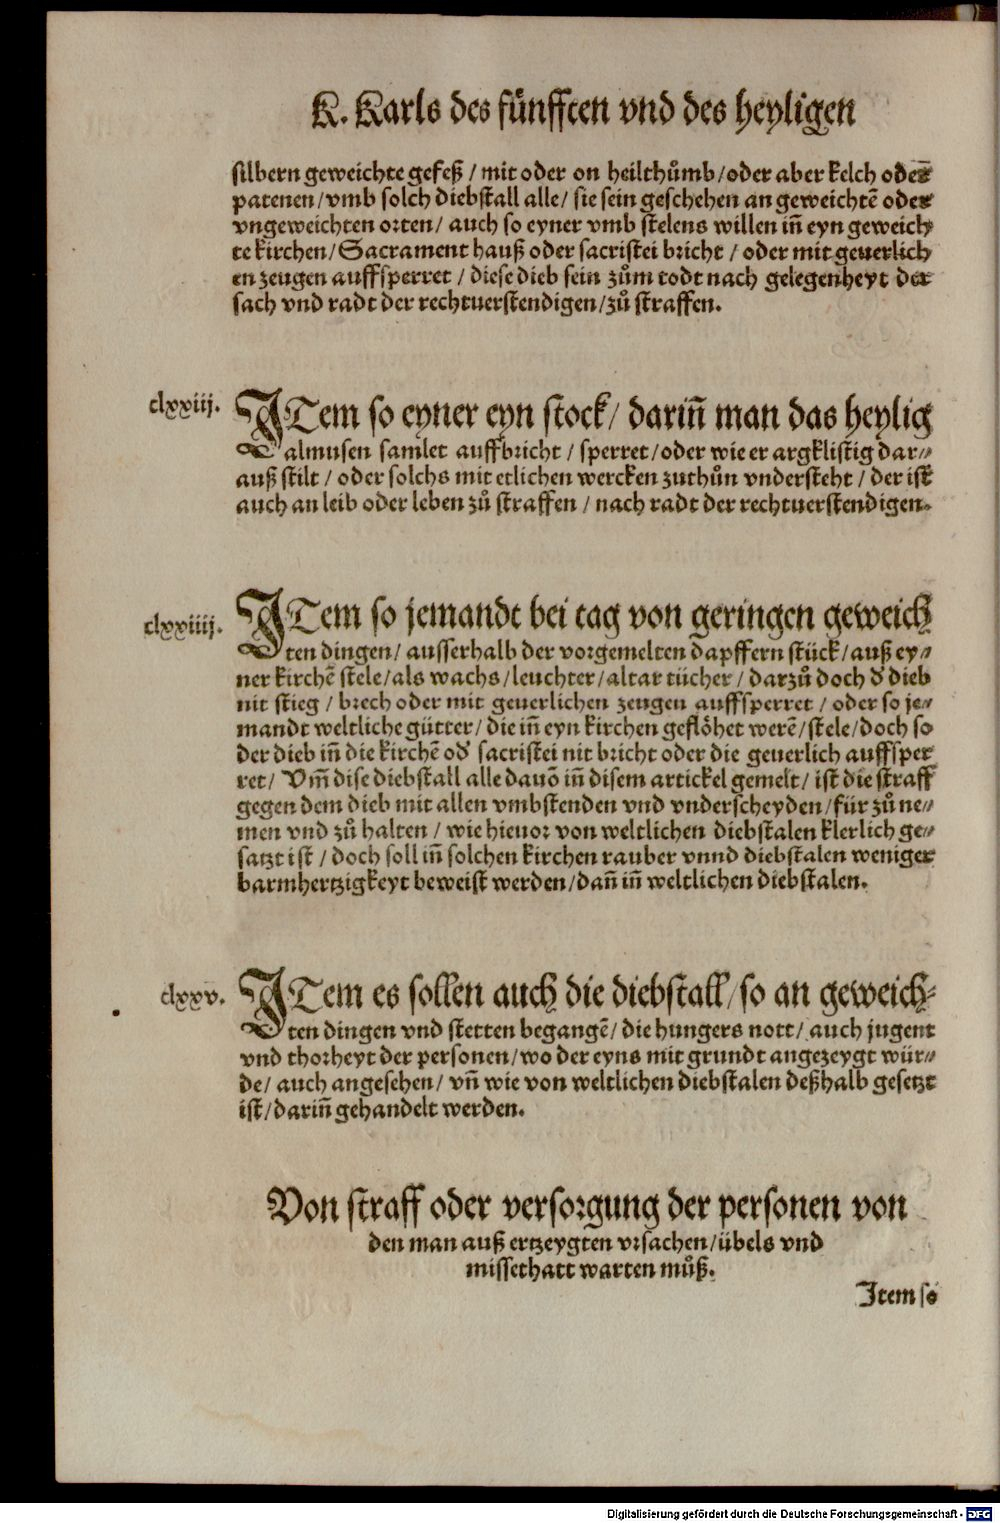 K. Karls des fünfften vnd des heyligen
silbern geweichte gefeß / mit oder on heilthůmb / oder aber kelch oder
patenen / vmb solch diebstall alle / sie sein geschehen an geweichtẽ oder
vngeweichten orten / auch so eyner vmb stelens willen iñ eyn geweich
te kirchen / Sacrament hauß oder sacristei bricht / oder mit geuerlich
en zeugen auffsperret / diese dieb sein zům todt nach gelegenheyt der
sach vnd radt der rechtuerstendigen / zů straffen.
clxxiij.
ITem so eyner eyn stock / dariñ man das heylig
almusen samlet auffbricht / sperret / oder wie er argklistig dar⸗
auß stilt / oder solchs mit etlichen wercken zuthůn vndersteht / der ist
auch an leib oder leben zů straffen / nach radt der rechtuerstendigen.
clxxiiij.
ITem so jemandt bei tag von geringen geweich
ten dingen / ausserhalb der vorgemelten dapffern stück / auß ey⸗
ner kirchẽ stele / als wachs / leuchter / altar tücher / darzů doch d' dieb
nit stieg / brech oder mit geuerlichen zeugen auffsperret / oder so je⸗
mandt weltliche gütter / die iñ eyn kirchen geflöhet werẽ / stele / doch so
der dieb iñ die kirchẽ od' sacristei nit bricht oder die geuerlich auffsper
ret / Vm̃ dise diebstall alle dauõ iñ disem artickel gemelt / ist die straff
gegen dem dieb mit allen vmbstenden vnd vnderscheyden / für zů ne⸗
men vnd zů halten / wie hieuor von weltlichen diebstalen klerlich ge⸗
satzt ist / doch soll iñ solchen kirchen rauber vnnd diebstalen weniger
barmhertzigkeyt beweist werden / dañ iñ weltlichen diebstalen.
clxxv.
ITem es sollen auch die diebstall / so an geweich⸗
ten dingen vnd stetten begangẽ / die hungers nott / auch jugent
vnd thorheyt der personen / wo der eyns mit grundt angezeygt wür⸗
de / auch angesehen / vñ wie von weltlichen diebstalen deßhalb gesetzt
ist / dariñ gehandelt werden.
Von straff oder versorgung der personen von
den man auß ertzeygten vrsachen / übels vnd
missethatt warten můß.
Item so
Digitalisierung gefördert durch die Deutsche Forschungsgemeinschaft - DFG